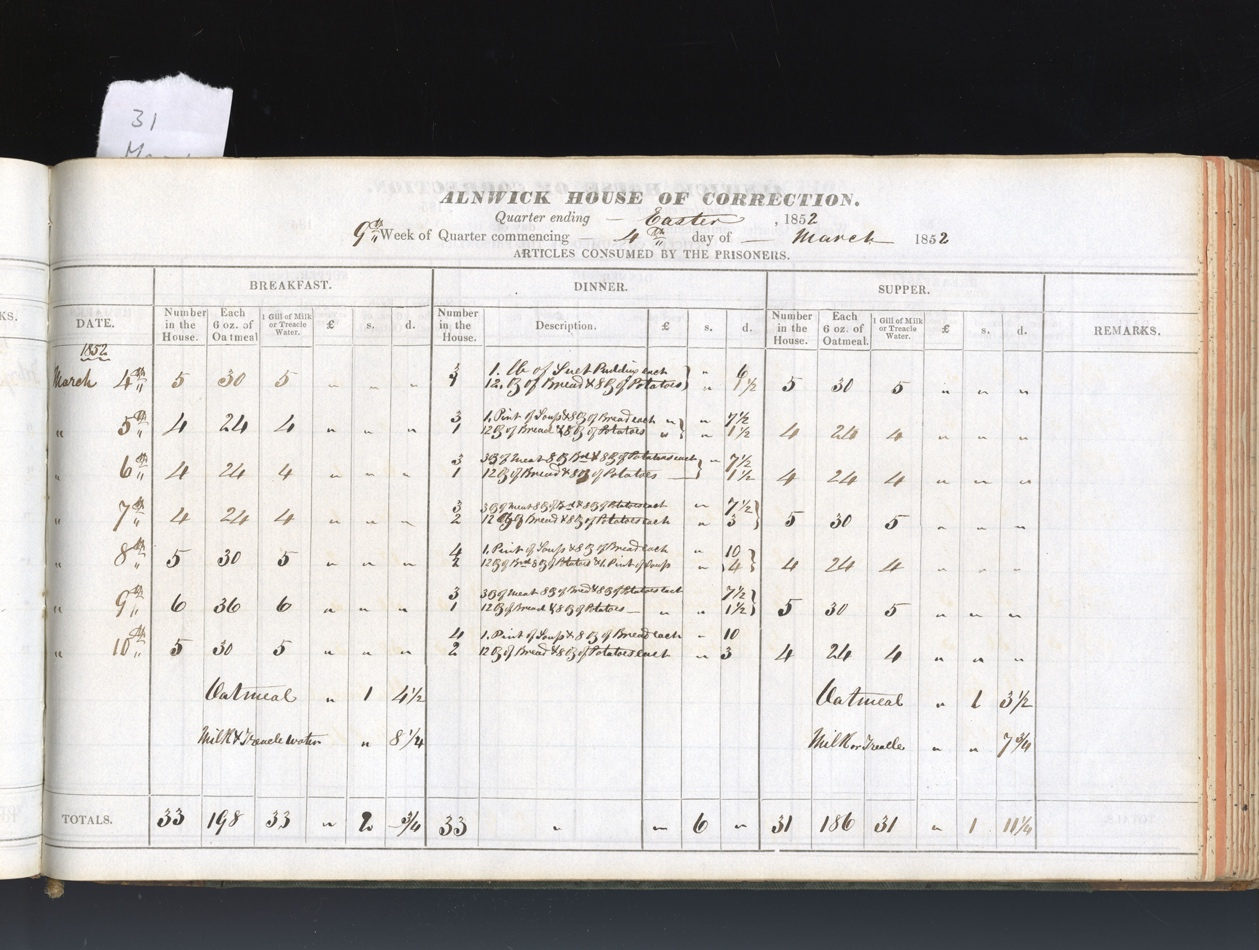 31
ALNWICK HOUSE OF CORRECTION.
Quarter ending — Easter , 1852
9th Week of Quarter commencing — 4th day of — March 1852
ARTICLES CONSUMED BY THE PRISONERS.
KS.
BREAKFAST. DINNER. SUPPER.
DATE. Number in the House. Each 6 oz. of Oatmeal 1 Gill of Milk or Treacle Water. £ s. d. Number in the House. Description. £ s. d. Number in the House. Each 6 oz. of Oatmeal. 1 Gill of Milk or Treacle Water. £ s. d. REMARKS.
1852
March 4th 5 30 5 " " " 1. lb of Suet Pudding each " 6
1 12 oz of Bread & 8 oz of Potatoes " 1½ 5 30 5 " " "
" 5th 4 24 4 " " " 3 1. Pint of Soup & 8 oz of Bread each " " 7½
1 12 oz of Bread & 8 oz of Potatoes " " 1½ 4 24 4 " " "
" 6th 4 24 4 " " " 3 3 oz of Meat 8 oz Brd & 8 oz of Potatoes each " 7½
1 12 oz of Bread & 8 oz of Potatoes — 1½ 4 24 4 " " "
" 7th 4 24 4 " " " 3 3 oz of Meat 8 oz of Brd & 8 oz of Potatoes each " 7½
2 12 oz of Bread & 8 oz of Potatoes each " 3 5 30 5 " " "
" 8th 5 30 5 " " " 4 1. Pint of Soup & 8 oz of Bread each " 10
2 12 oz of Brd 8 oz of Potatoes & 1. Pint of Soup " 4 4 24 4 " " "
" 9th 6 36 6 " " " 3 3 oz of Meat 8 oz of Bred & 8 oz of Potatoes each 7½
1 12 oz of Bread & 8 oz of Potatoes — " " 1½ 5 30 5 " " "
" 10th 5 30 5 " " " 4 1. Pint of Soup & 8 oz of Bread each " 10
2 12 oz of Bread & 8 oz of Potatoes each " 3 4 24 4 " " "
Oatmeal " 1 4½ Oatmeal " 1 3½
Milk & Treacle water " 8¼ Milk or Treacle " " 7¾
TOTALS. 33 198 33 " 2 ¾ 33 " " 6 " 31 186 31 " 1 11¼